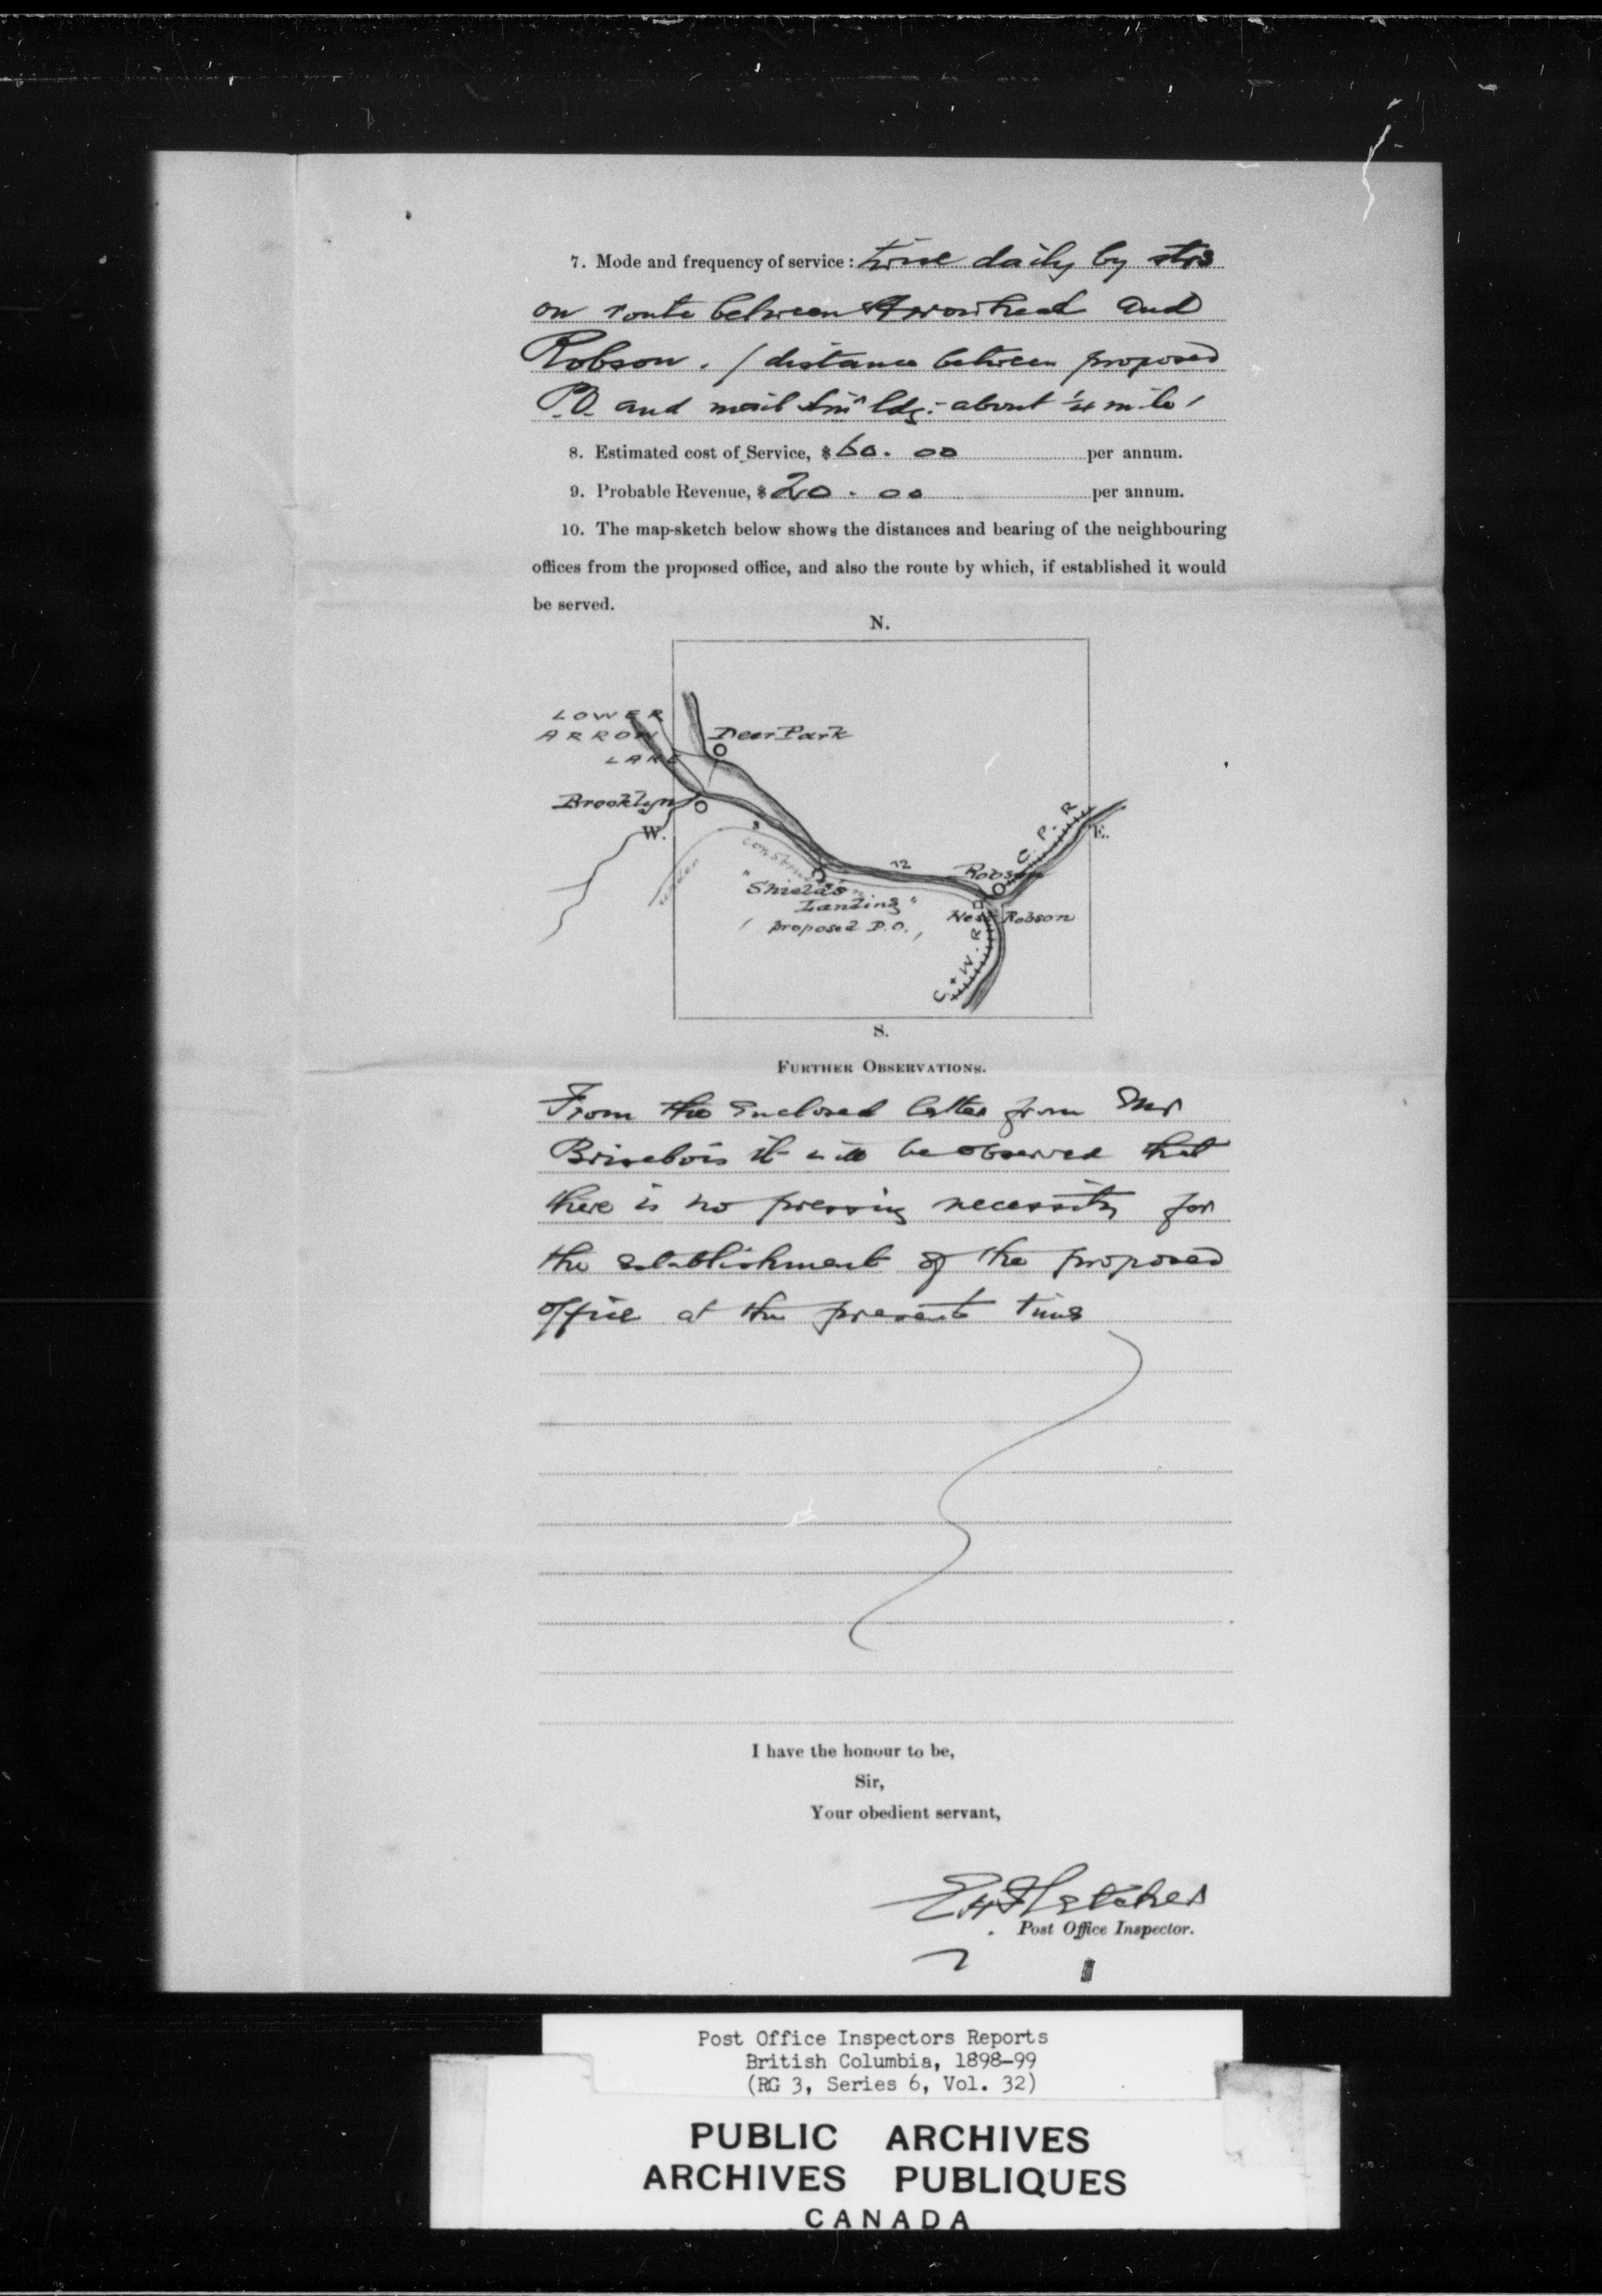 7. Mode and frequency of service: twice daily by strs
on route between Arrowhead and
Robson. (distance between proposed
P.O. and mail ldg:- about 1/4 mile)
8. Estimated cost of Service, $ 60.00 per annum.
9. Probable Revenue, $ 20.00 per annum.
10. The map-sketch below shows the distances and bearing of the neighbouring
offices from the proposed office, and also the route by which, if established it would
be served.
N.
LOWER
ARROW
LAKE
Deer Park
Brooklyn
W.
E.
C. P. R
under
construction
12
Robson
"Shields
Landing"
(proposed P.O.)
West Robson
C + W. R
S.
FURTHER OBSERVATIONS.
From the enclosed letter from Mr
Brisebois it will be observed that
there is no pressing necessity for
the establishment of the proposed
office at the present time
I have the honour to be,
Sir,
Your obedient servant,
E H Fletcher
Post Office Inspector.
Post Office Inspectors Reports
British Columbia, 1898-99
(RG 3, Series 6, Vol. 32)
PUBLIC ARCHIVES
ARCHIVES PUBLIQUES
CANADA